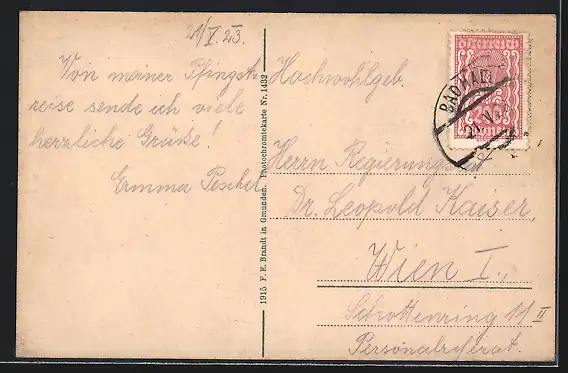 21/V.23.
Von meiner Pfingst-
reise sende ich viele
herzliche Grüße!
Emma Peschel
1915 F. E. Brandt in Gmunden. Photochromiekarte Nr. 1432
Österreich
200
BAD HALL
21.V.23
Hochwohlgeb.
Herrn Regierungsrat
Dr. Leopold Kaiser,
Wien I.,
Schottenring 11 II
Personalreferat.